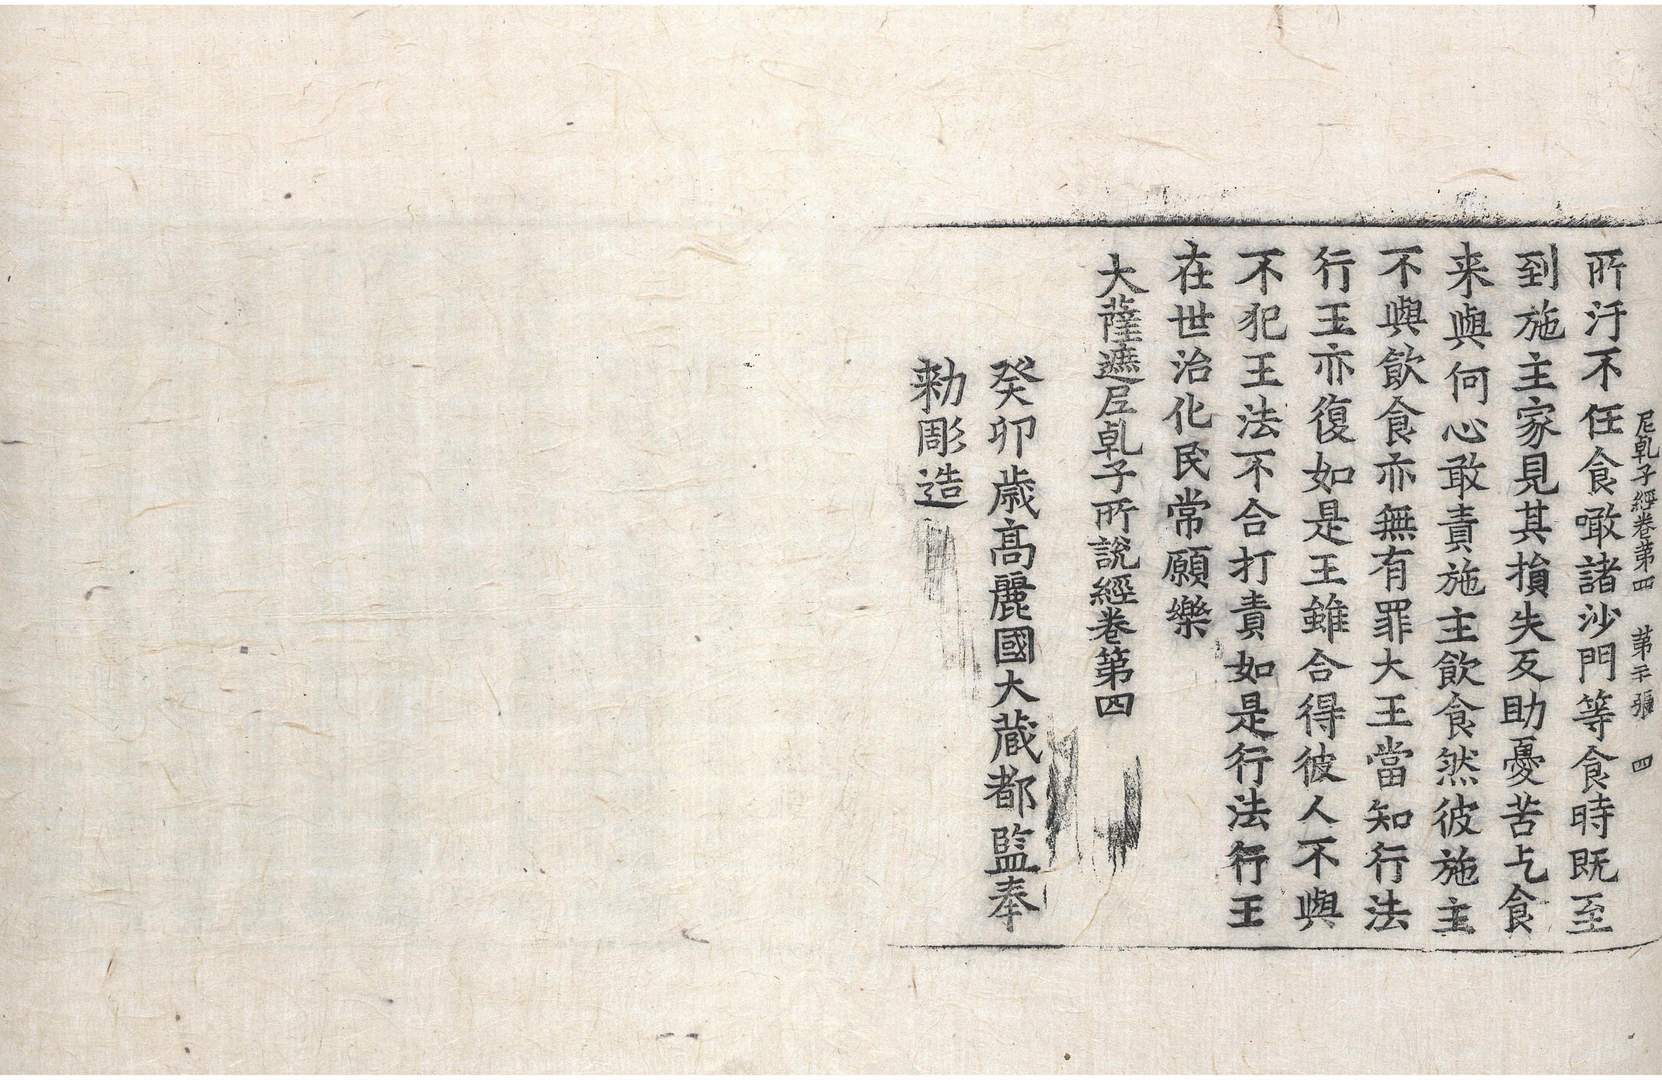 尼乹子經卷第四 第二十張 四
所汙不任食噉諸沙門等食時旣至
到施主家見其損失反助憂苦乞食
来與何心敢責施主飲食然彼施主
不與飲食亦無有罪大王當知行法
行王亦復如是王雖合得彼人不與
不犯王法不合打責如是行法行王
在世治化民常願樂
大薩遮尼乹子所說經卷第四
癸卯歲高麗國大藏都監奉
勑彫造